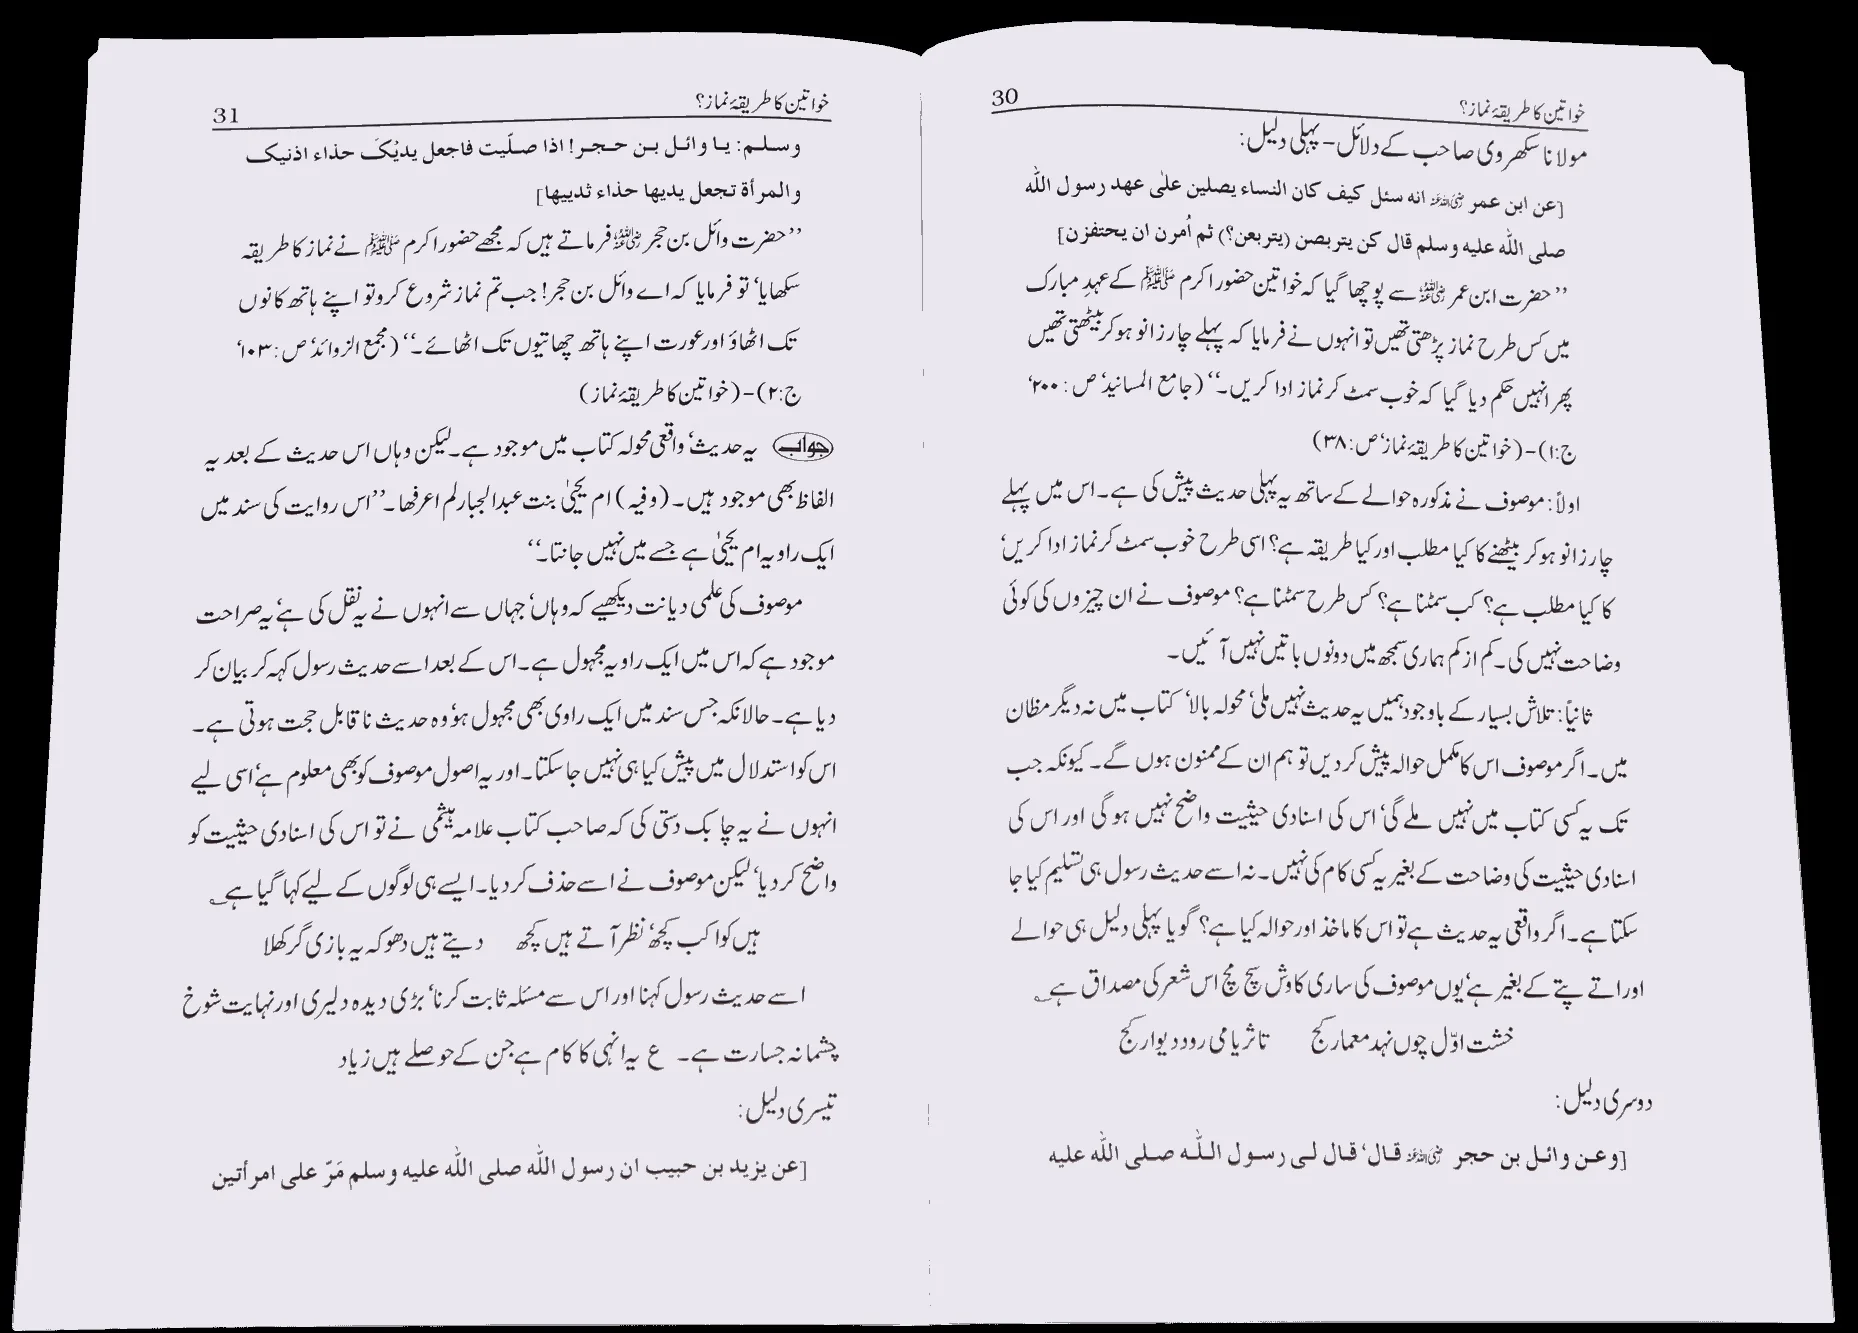 خواتین کا طریقۂ نماز؟ 30
مولانا سکھروی صاحب کے دلائل - پہلی دلیل:
[عن ابن عمر رضی اللہ عنہ انه سئل کیف کان النساء یصلین علٰی عهد رسول اللّٰه
صلی اللّٰه علیه وسلم قال کن یتربصن (یتربعن؟) ثم أمرن ان یحتفزن]
’’حضرت ابن عمر رضی اللہ عنہ سے پوچھا گیا کہ خواتین حضور اکرم ﷺ کے عہدِ مبارک
میں کس طرح نماز پڑھتی تھیں تو انہوں نے فرمایا کہ پہلے چار زانو ہو کر بیٹھتی تھیں
پھر انہیں حکم دیا گیا کہ خوب سمٹ کر نماز ادا کریں۔‘‘ (جامع المسانید‘ ص: ۲۰۰‘
ج:۱) - (خواتین کا طریقۂ نماز‘ ص: ۳۸)
اولاً: موصوف نے مذکورہ حوالے کے ساتھ یہ پہلی حدیث پیش کی ہے۔ اس میں پہلے
چار زانو ہو کر بیٹھنے کا کیا مطلب اور کیا طریقہ ہے؟ اسی طرح خوب سمٹ کر نماز ادا کریں‘
کا کیا مطلب ہے؟ کب سمٹنا ہے؟ کس طرح سمٹنا ہے؟ موصوف نے ان چیزوں کی کوئی
وضاحت نہیں کی۔ کم از کم ہماری سمجھ میں دونوں باتیں نہیں آئیں۔
ثانیاً: تلاش بسیار کے باوجود ہمیں یہ حدیث نہیں ملی‘ محولہ بالا‘ کتاب میں نہ دیگر مظان
میں۔ اگر موصوف اس کا مکمل حوالہ پیش کر دیں تو ہم ان کے ممنون ہوں گے۔ کیونکہ جب
تک یہ کسی کتاب میں نہیں ملے گی‘ اس کی اسنادی حیثیت واضح نہیں ہوگی اور اس کی
اسنادی حیثیت کی وضاحت کے بغیر یہ کسی کام کی نہیں۔ نہ اسے حدیث رسول ہی تسلیم کیا جا
سکتا ہے۔ اگر واقعی یہ حدیث ہے تو اس کا ماخذ اور حوالہ کیا ہے؟ گویا پہلی دلیل ہی حوالے
اور اتے پتے کے بغیر ہے‘ یوں موصوف کی ساری کاوش سچ مچ اس شعر کی مصداق ہے ؎
خشت اوّل چوں نہد معمار کج تا ثریا می رود دیوار کج
دوسری دلیل:
[وعن وائل بن حجر رضی اللہ عنہ قال‘ قال لی رسول اللّٰه صلی اللّٰه علیه
خواتین کا طریقۂ نماز؟ 31
وسلم: یا وائل بن حجر! اذا صلّیت فاجعل یدیْکَ حذاء اذنیک
والمرأة تجعل یدیها حذاء ثدییها]
’’حضرت وائل بن حجر رضی اللہ عنہ فرماتے ہیں کہ مجھے حضور اکرم ﷺ نے نماز کا طریقہ
سکھایا‘ تو فرمایا کہ اے وائل بن حجر! جب تم نماز شروع کرو تو اپنے ہاتھ کانوں
تک اٹھاؤ اور عورت اپنے ہاتھ چھاتیوں تک اٹھائے۔‘‘ (مجمع الزوائد‘ ص: ۱۰۳‘
ج:۲) - (خواتین کا طریقۂ نماز)
جواب یہ حدیث‘ واقعی محولہ کتاب میں موجود ہے۔ لیکن وہاں اس حدیث کے بعد یہ
الفاظ بھی موجود ہیں۔ (وفیہ) ام یحییٰ بنت عبدالجبار لم اعرفھا۔ ’’اس روایت کی سند میں
ایک راویہ ام یحییٰ ہے جسے میں نہیں جانتا۔‘‘
موصوف کی علمی دیانت دیکھیے کہ وہاں‘ جہاں سے انہوں نے یہ نقل کی ہے‘ یہ صراحت
موجود ہے کہ اس میں ایک راویہ مجہول ہے۔ اس کے بعد اسے حدیث رسول کہہ کر بیان کر
دیا ہے۔ حالانکہ جس سند میں ایک راوی بھی مجہول ہو‘ وہ حدیث ناقابل حجت ہوتی ہے۔
اس کو استدلال میں پیش کیا ہی نہیں جا سکتا۔ اور یہ اصول موصوف کو بھی معلوم ہے‘ اسی لیے
انہوں نے یہ چابک دستی کی کہ صاحب کتاب علامہ ہیثمی نے تو اس کی اسنادی حیثیت کو
واضح کر دیا‘ لیکن موصوف نے اسے حذف کر دیا۔ ایسے ہی لوگوں کے لیے کہا گیا ہے ؎
ہیں کواکب کچھ‘ نظر آتے ہیں کچھ دیتے ہیں دھوکہ یہ بازی گر کھلا
اسے حدیث رسول کہنا اور اس سے مسئلہ ثابت کرنا‘ بڑی دیدہ دلیری اور نہایت شوخ
چشمانہ جسارت ہے۔ ع یہ انہی کا کام ہے جن کے حوصلے ہیں زیاد
تیسری دلیل:
[عن یزید بن حبیب ان رسول اللّٰه صلی اللّٰه علیه وسلم مَرّ علی امرأتین